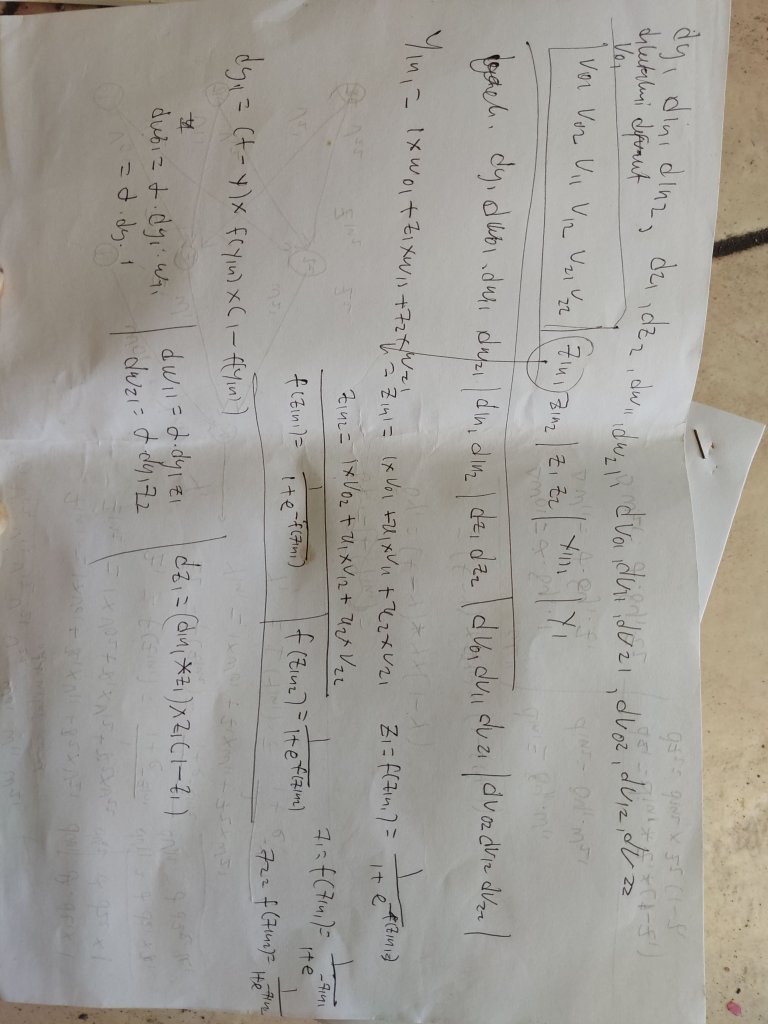 dy1 din1 din2, dz1, dz2, dw11, dw21, dv01, dv11, dv21, dv02, dv12, dv22
V01
V01 V02 V11 V12 V21 V22 | Zin1 Zin2 | Z1 Z2 | Yin1 | Y1
dy1 dw01, dw11 dw21 | din1 din2 | dz1 dz2 | dv01 dv11 dv21 | dv02 dv12 dv22 |
Yin1 = 1 x w01 + Z1 x w11 + Z2 x w21
= Zin1 = 1 x v01 + x1 x v11 + x2 x v21
Z1 = f(Zin1) = 1 / 1 + e^-f(Zin1)
Zin2 = 1 x v02 + x1 x v12 + x2 x v22
f(Zin1) = 1 / 1 + e^-f(Zin1)
f(Zin2) = 1 / 1 + e^f(Zin2)
Z1 = f(Zin1) = 1 / 1 + e^-Zin1
Z2 = f(Zin2) = 1 / 1 + e^-Zin2
dy1 = (t - y) x f(yin) x (1 - f(yin))
dw01 = α . dy1 . w1
= α . dy . 1
dw11 = α . dy1 z1
dw21 = α . dy1 z2
dz1 = (din1 * z1) x z1 (1 - z1)